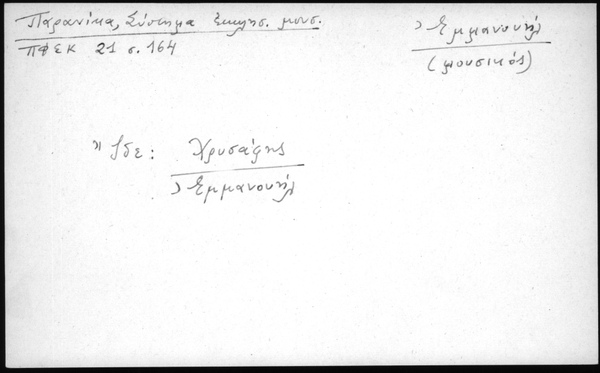 Παρανίκα, Σύστημα ἐκκλησ. μουσ.
ΠΦΕΚ 21 σ. 164
Ἐμμανουήλ
(μουσικός)
Ἴδε: Χρυσάφης
Ἐμμανουήλ